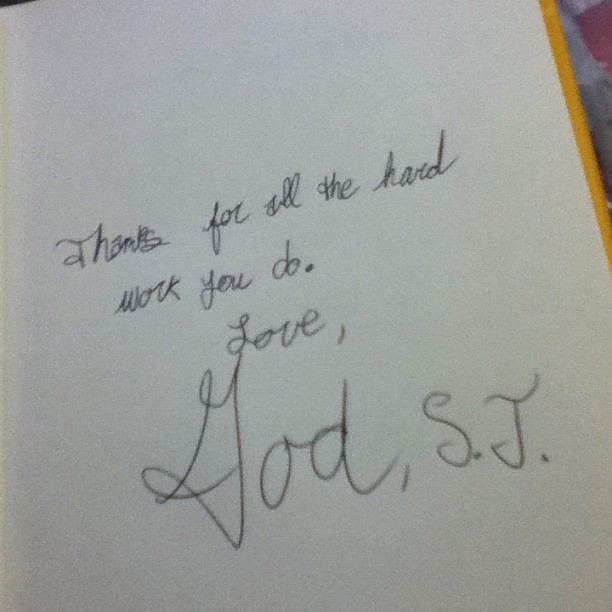 Thanks for all the hard
work you do.
Love,
God, S.J.